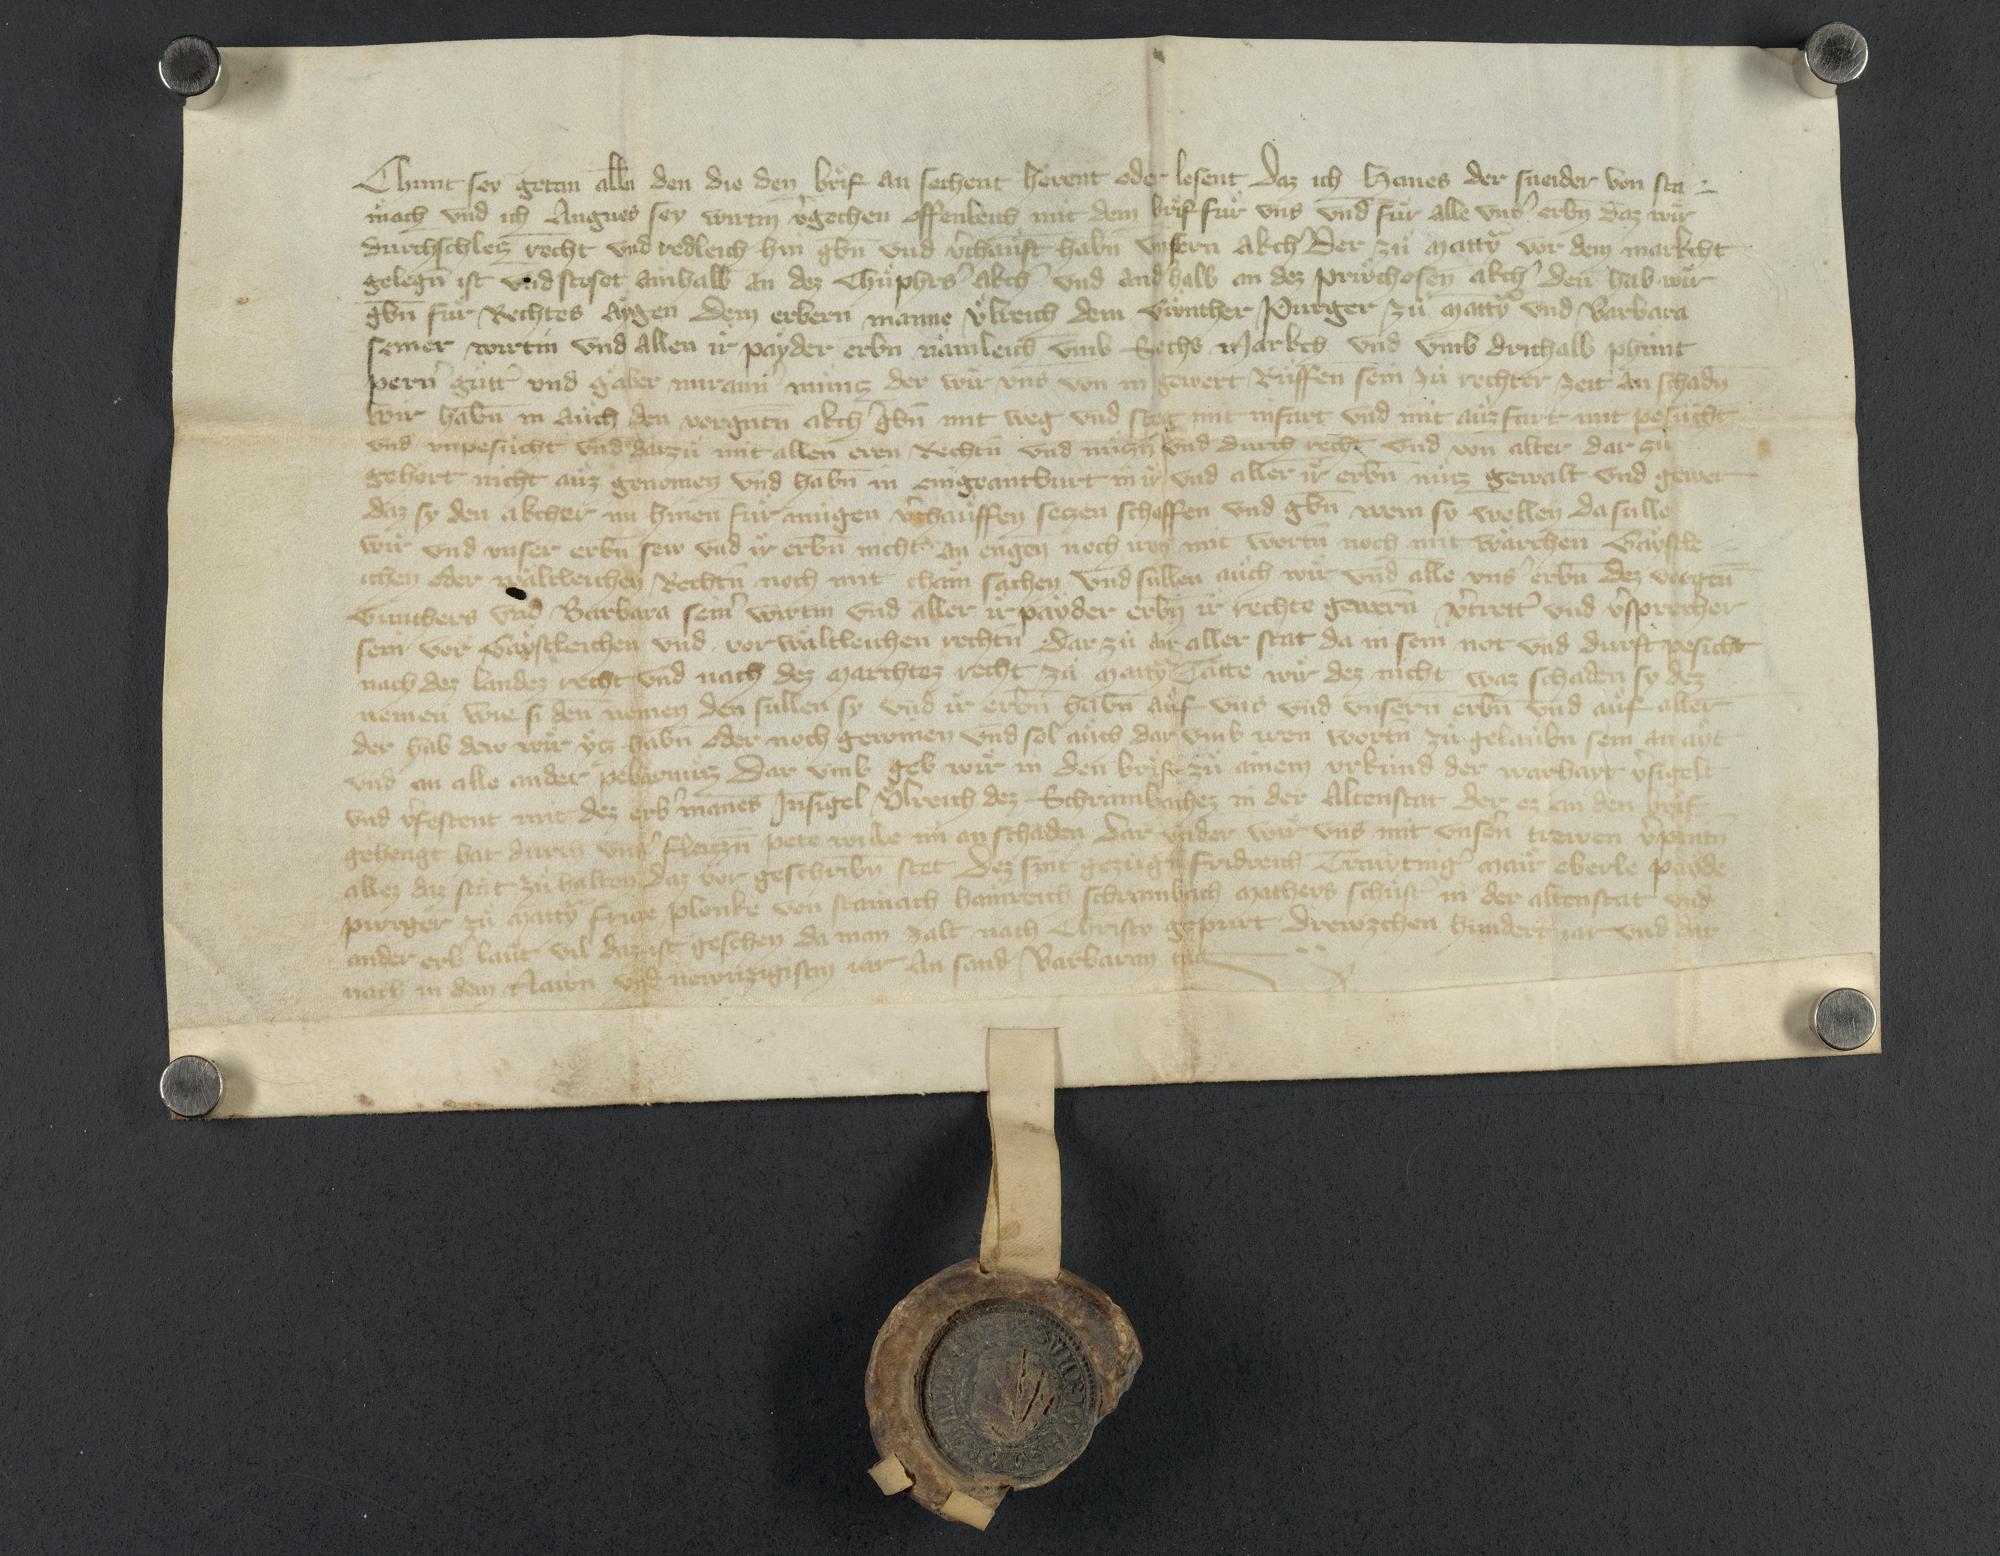 Chunt sey getan allen den die den brif an sechent hörent oder lesent daz ich Hanes der sneider von sta-
inach vnd ich Angnes sey wirtin v'gechen offenleich mit dem brif für vns vnd für alle vns' erbn daz wir
durchschlechts recht vnd redleich hin gebn vnd v'chauft habn vnsern akch' Der zu Mattrÿ vor dem markcht
gelegn ist vnd stoset ainhalb an dez akch' vnd andhalb an dez akch' den hab wir
gebn für Rechtes Aygen dem erbern manne Vlreich dem Günther Purger zu Mattrÿ vnd Barbara
seiner wirtin vnd allen ir payder erbn nämleich vmb Sechs Markch vnd vmb drithalb phunt
pern' gutt' vnd gaber meran' müniz der wir vns von in gewert Rüffen sein zu rechter zeit an schadn
wir habn in auch den vorgntn akch' gebn mit weg vnd steg mit infart vnd mit auzfart mit pesucht
vnd vnpesucht vnd darzu mit allen eren Rechtn vnd nuczn vnd durch recht vnd von alter dar zu
gehört nicht auz genomen vnd habn in eingeantburt in ir vnd aller ir erbn nucz gewalt vnd gewer
daz sy den akcher nu hinen für ainigen v'chauffen seczen schaffen vnd gebn wem sy wellen da sulle
wir vnd vnser erbn sew vnd ir erbn nicht an engen noch irrn mit wortn noch mit wärchen Gaystle
ichen oder wältleichen Rechtn noch mit chain sachen vnd sullen auch wir vnd alle vns' erbn dez vorgen
Günthers vnd Barbara sein' wirtin vnd aller ir payder erbn ir rechte gewern v'trett' vnd v'sprecher
sein vor Gaystleichen vnd vor wältleichen rechtn dar zu an aller stat da in sein not vnd durft peschicht
nach dez landez recht vnd nach dez marchtez recht zu Mattrÿ Tätte wir dez nicht waz schaden sy dez
nemen wie si den nemen den sullen sy vnd ir erbn habn auf vns vnd vnsern erbn vnd auf aller
der hab dew wir ycz habn oder noch gewinen vnd sol auch dar vmb iren wortn zu gelaubn sein an ayt
vnd an alle ander pebärnuz Dar vmb geb wir in den brif zu ainem vrkund der warhayt v'sigelt
vnd v'festent mit dez erb' manes Insigel Vlreich dez Schrambachez in der Altenstat der ez an den brif
gehengt hat durch vns' fleizzn pete wille im an schaden dar vnder wir vns mit vnsern trewen v'pintn
allez daz stät zu halten daz vor geschribn stet Dez sint gezüg Fridreich Mair eberle payde
purger zu Mattrÿ Fricze plonke von stainach hainreich schrambach Mathers schust' in der altenstat vnd
ander erb' laut vil daz ist geschen da man zalt nach Christy gepurt drewzehen hundert iar vnd dar
nach in dem Newn vnd newnzigistin iar An sand Barbaran tag